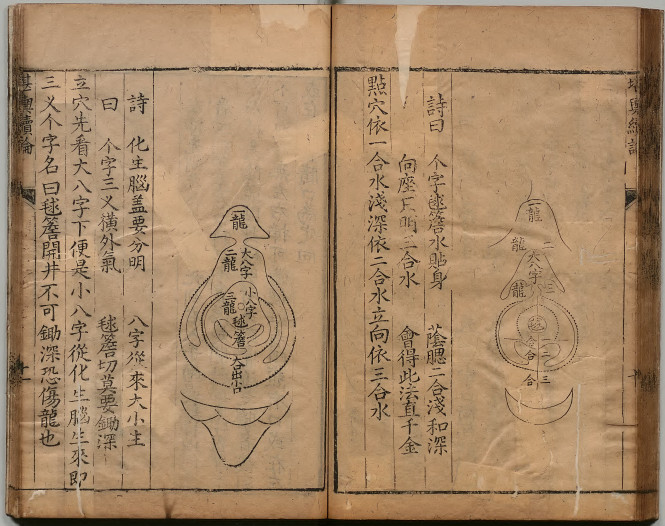 詩曰 个字毬簷水貼身 蔭腮二合淺和深
向座 明三合水 會得此法直千金
點穴依一合水淺深依二合水立向依三合水
一龍
二
龍
大八字
三
龍
毬
合
合
合
二
三
詩 化生腦盖要分明 八字從來大小主
曰 个字三义橫外氣 毬簷切莫要鋤深
立穴先看大八字下便是小八字從化生腦生來即
三义个字名曰毬簷開井不可鋤深恐傷龍也
一龍
大八字
二龍
小八字
三龍
毬簷
堪輿續論